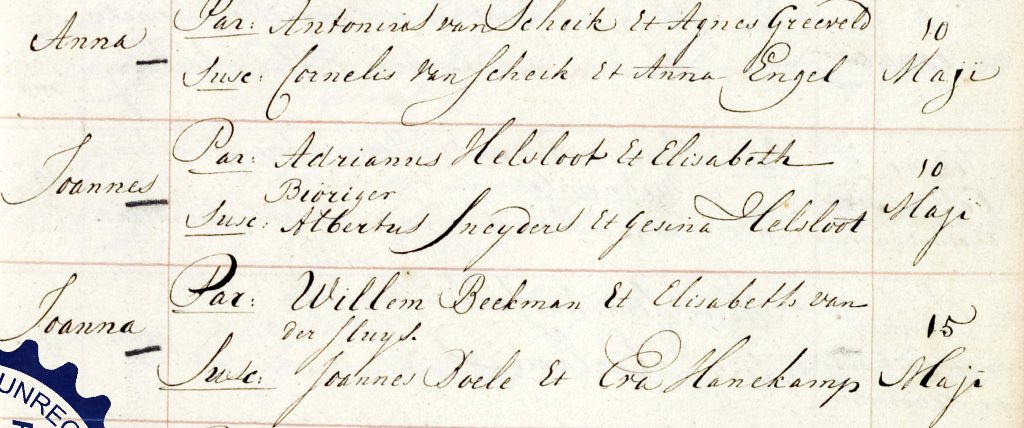 Anna
Par: Antonius van Scheik et Agnes Greeveld
10
Susc: Cornelis van Scheik et Anna Engel
Maji
Joannes
Par: Adrianus Helsloot et Elisabeth
10
Bioriger
Susc: Albertus Sneyders et Gesina Helsloot
Maji
Joanna
Par: Willem Beekman et Elisabeth van
15
der Sluys.
Susc: Joannes Doele et Eva Hanekamp
Maji
UNREG